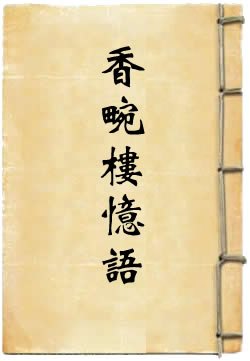 香畹樓憶語